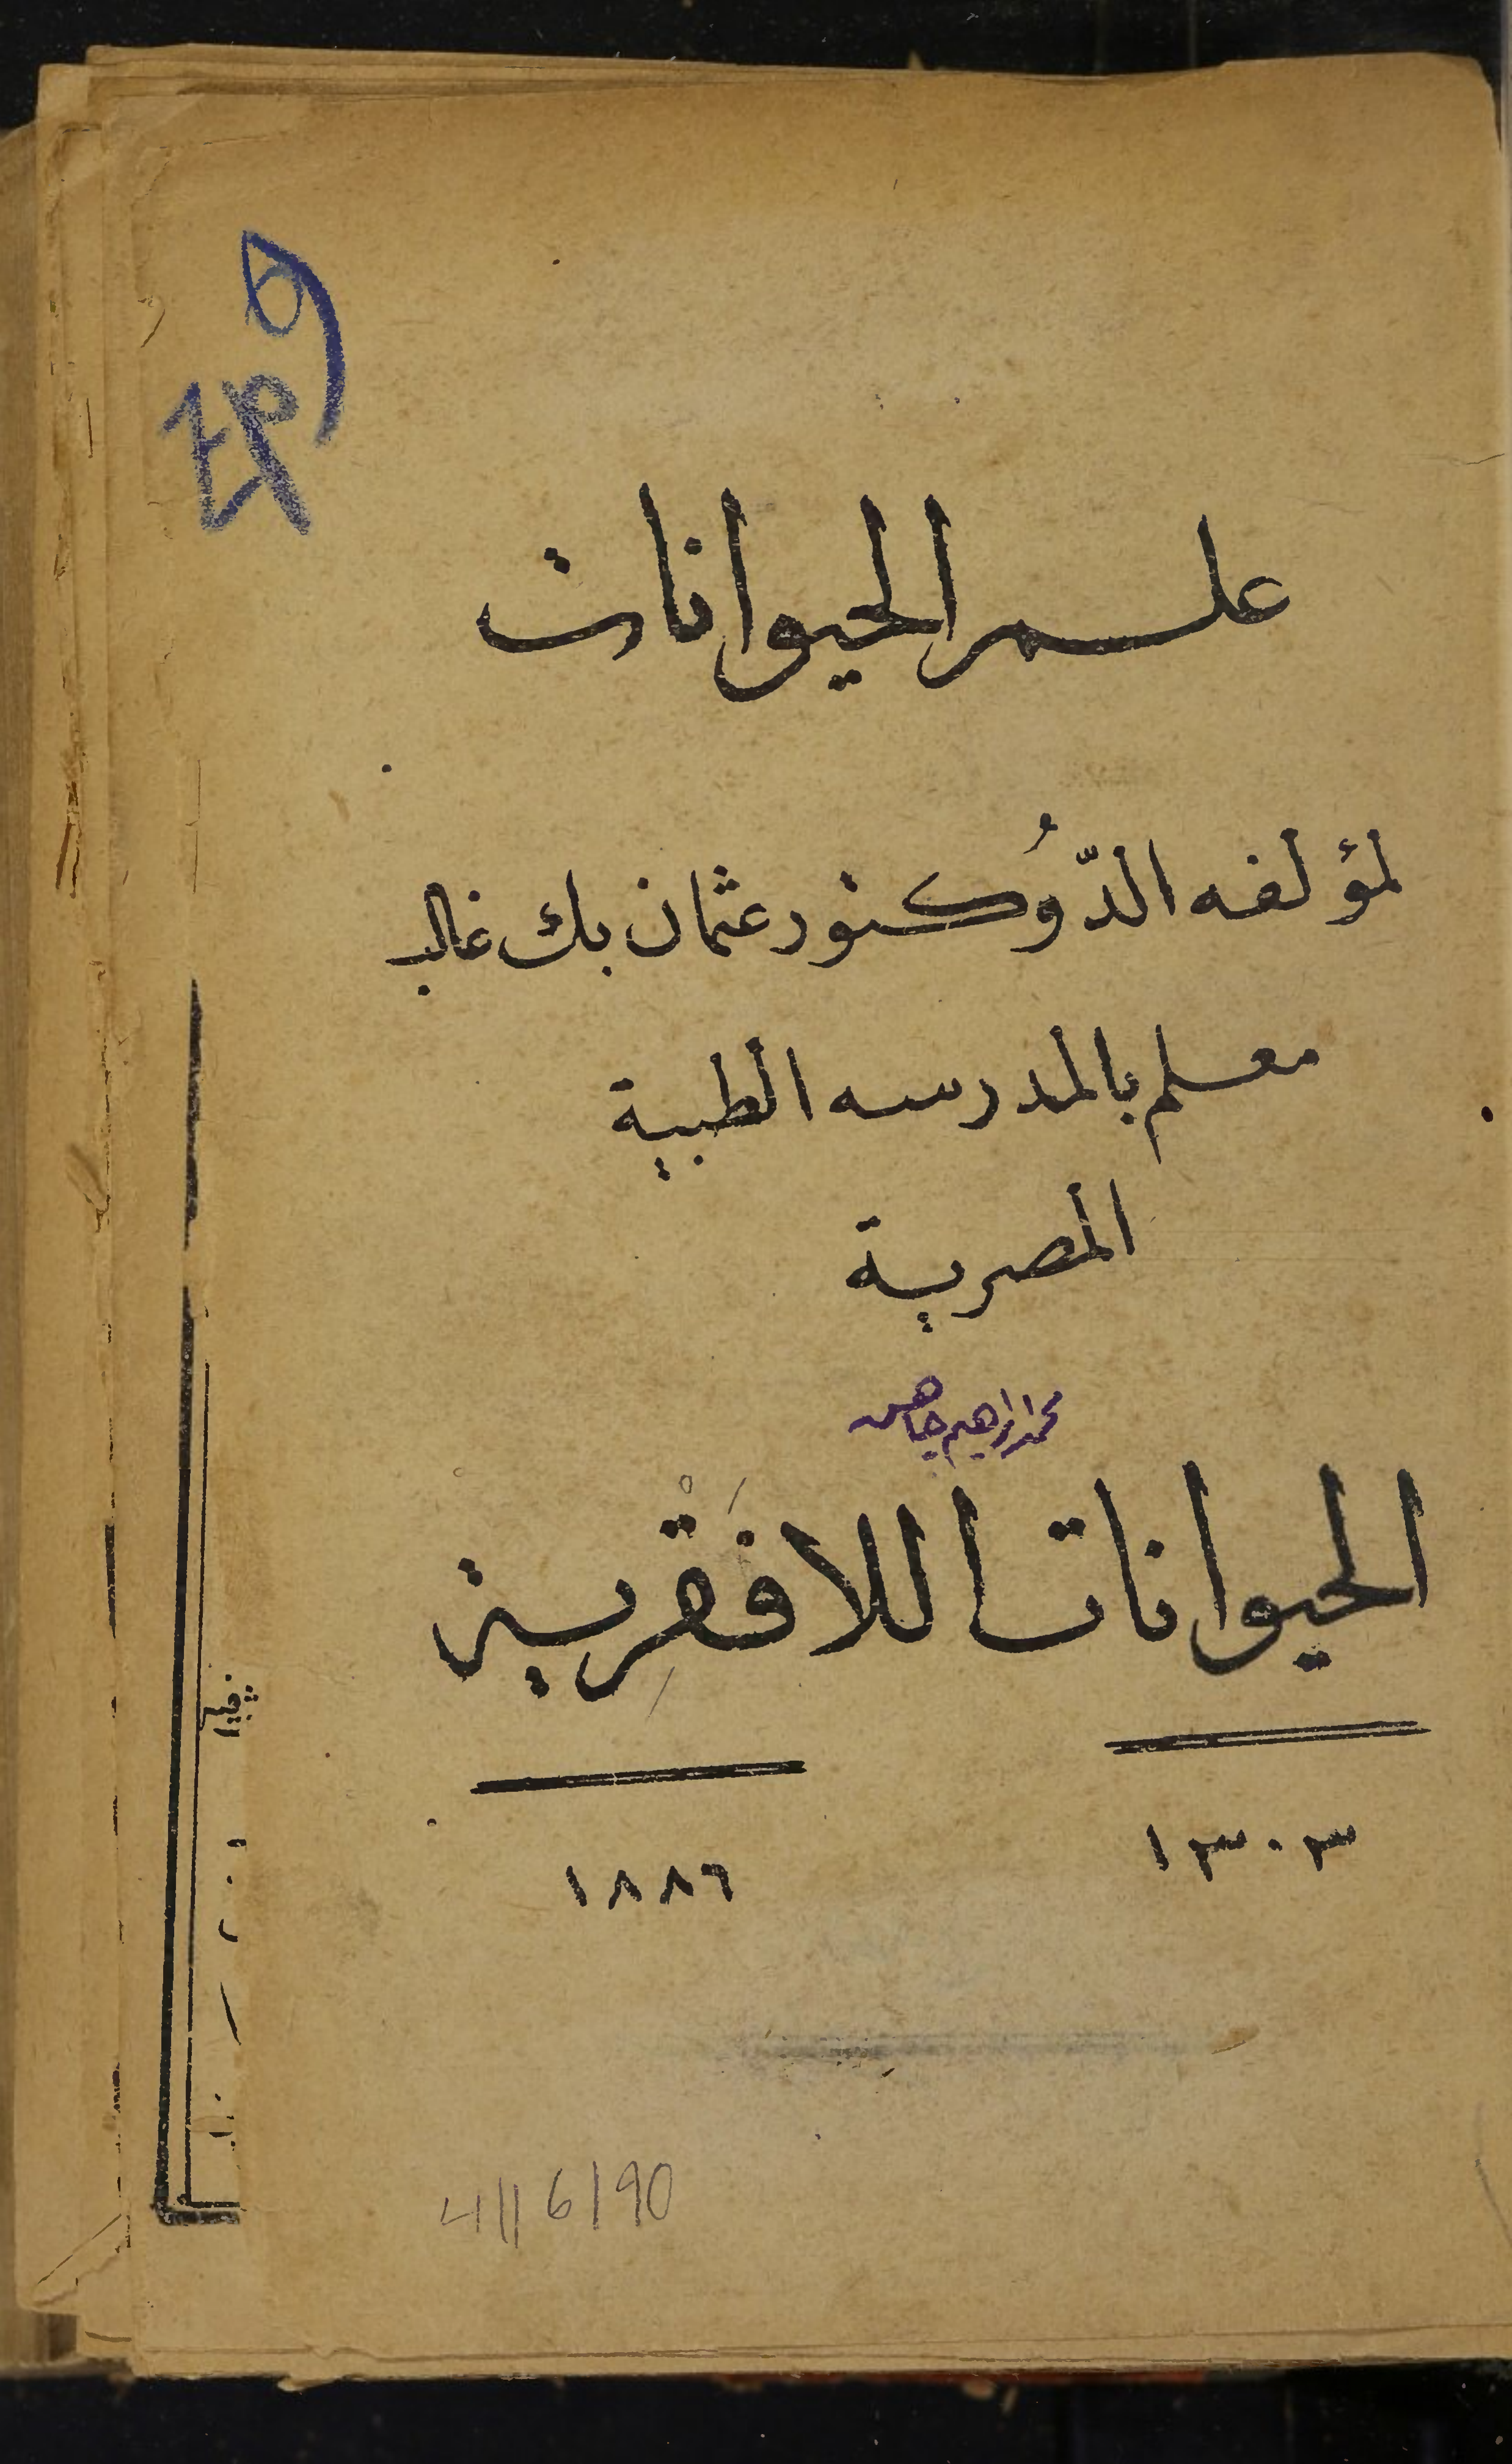 علم الحيوانات
لمؤلفه الدّوُكتور عثمان بك غالب
معلم بالمدرسه الطبية
المصرية
محمد ابراهيم
الحيوانات اللافقرية
١٣٠٣
١٨٨٦
4/16/90